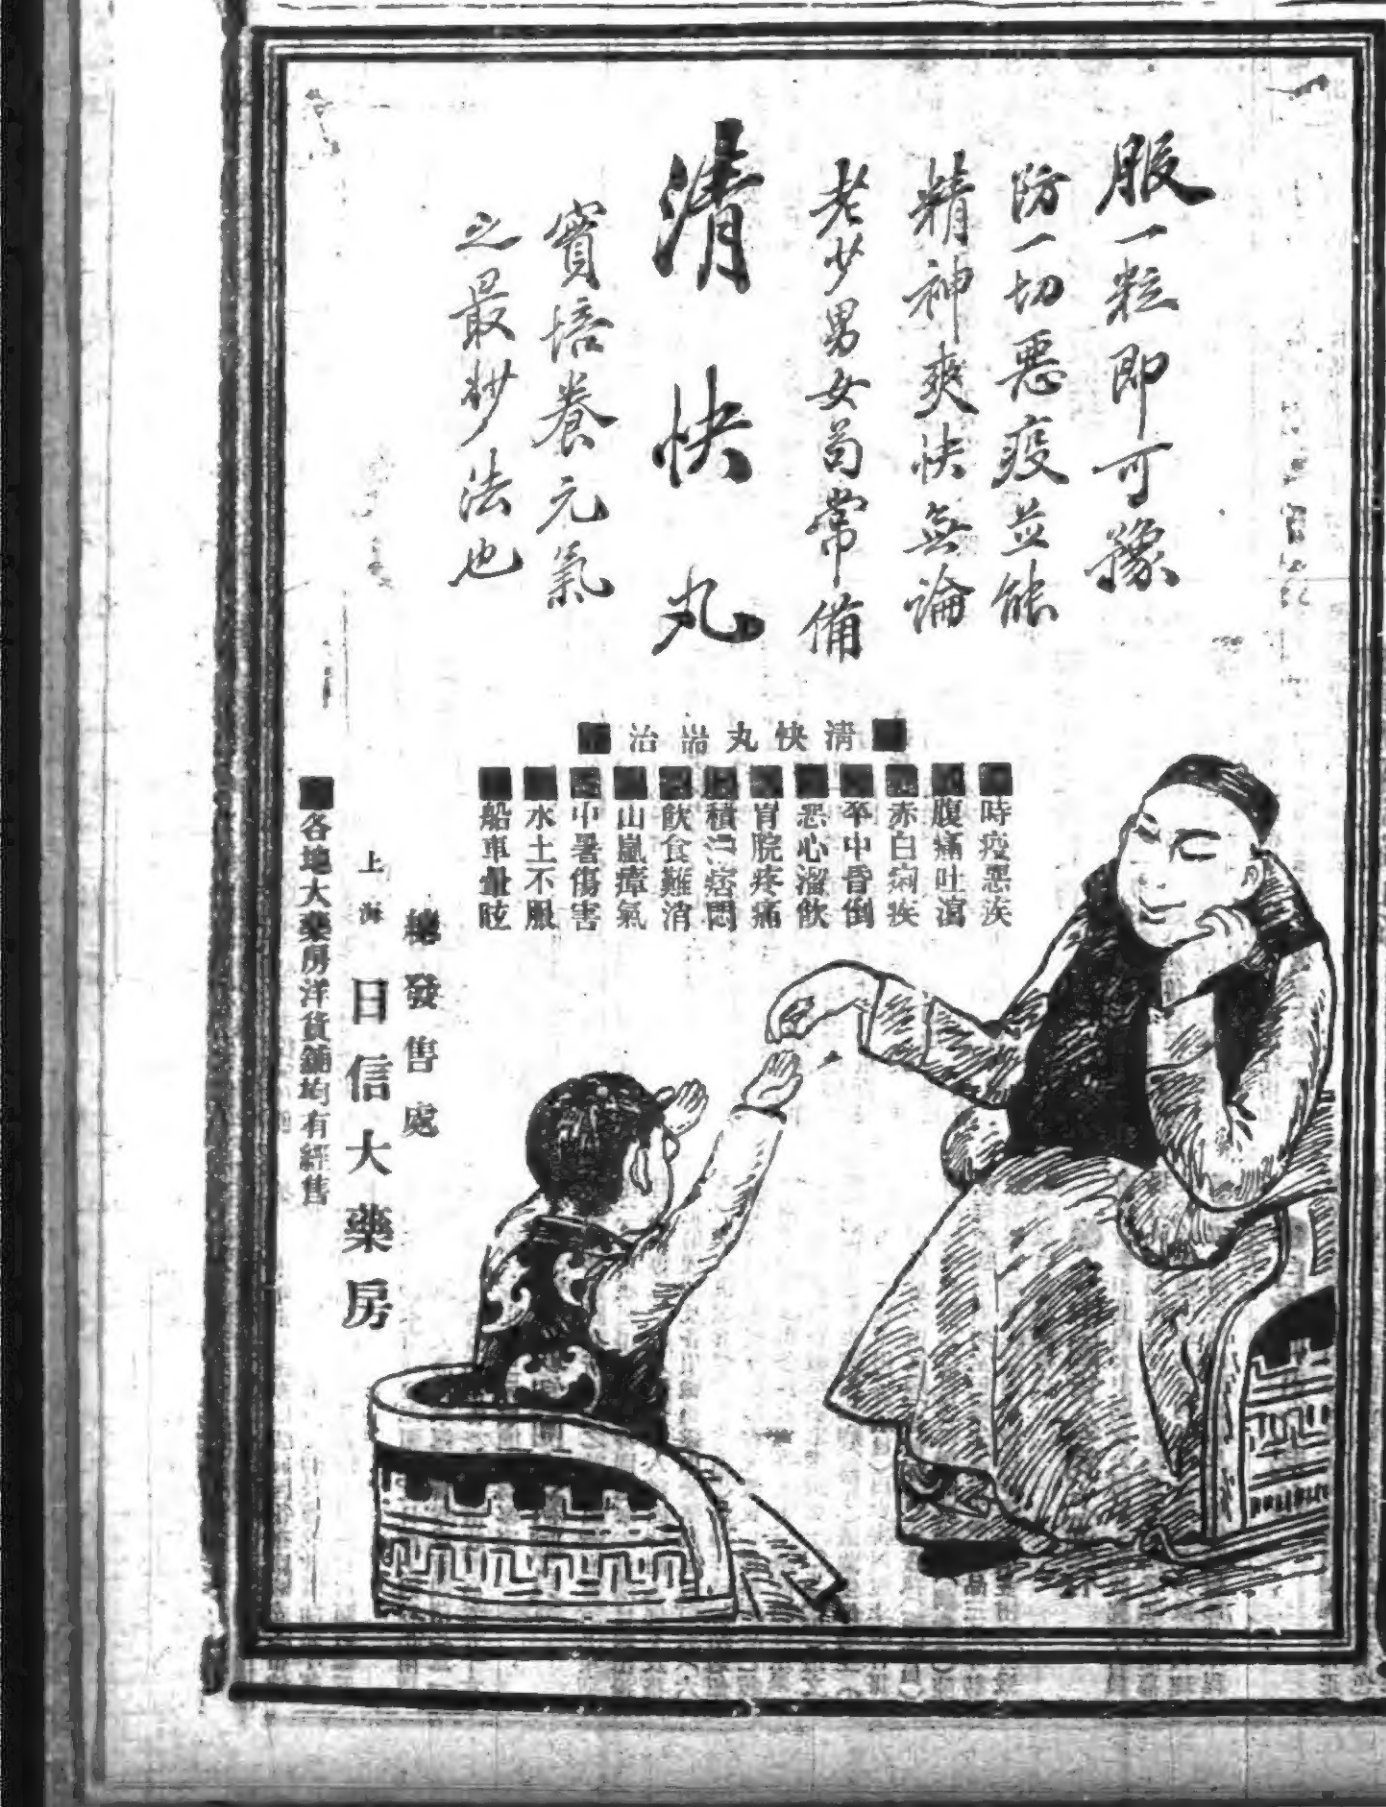 服一粒即可豫
防一切惡疫並能
精神爽快無論
老少男女苟常備
清快丸
實培養元氣
之最妙法也
清快丸耑治
時疫惡疾
腹痛吐瀉
赤白痢疾
卒中昏倒
惡心溜飲
胃脘疼痛
積 痞悶
飲食難消
山嵐瘴氣
中暑傷害
水土不服
船車暈眩
總發售處
上海 日信大藥房
各地大藥房洋貨鋪均有經售